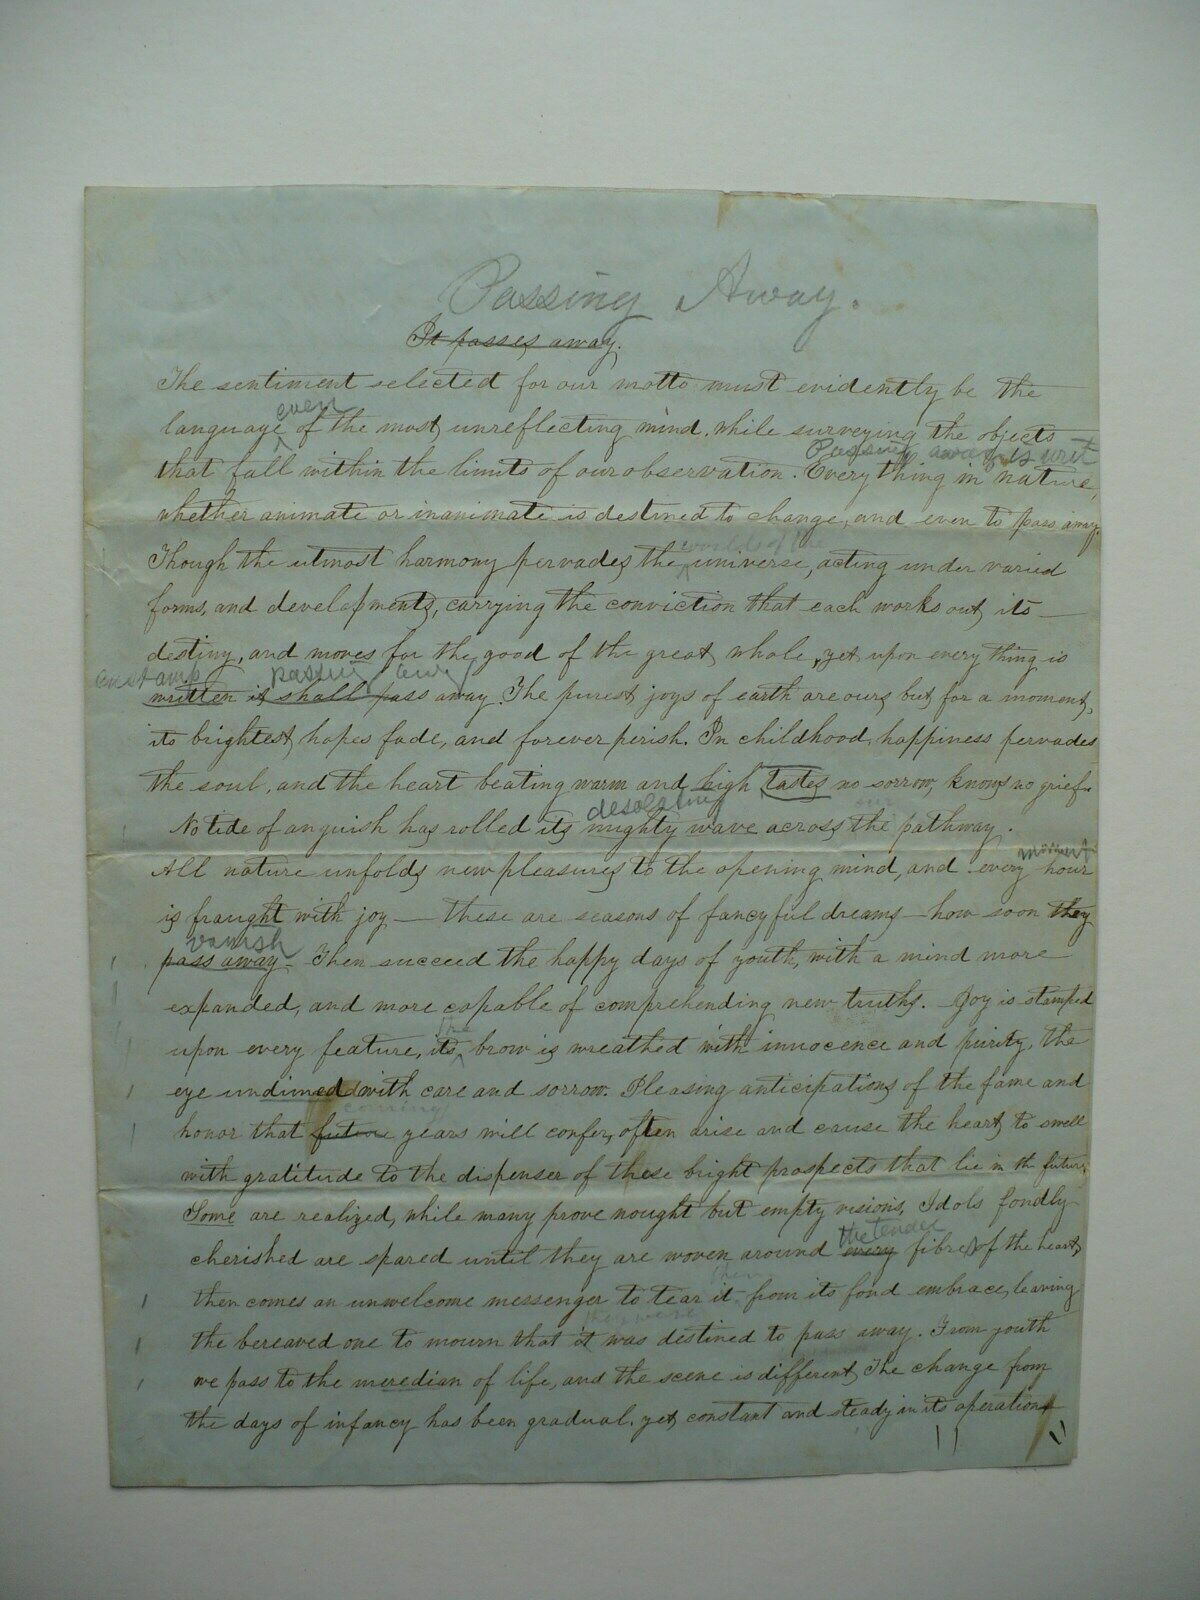 Passing Away.
It passes away.
The sentiment selected for our motto must evidently be the
even
language of the most unreflecting mind, while surveying the objects
Passing away is writ
that fall within the limits of our observation. Every thing in nature,
whether animate or inanimate is destined to change, and even to pass away.
worlds of the
Though the utmost harmony pervades the universe, acting under varied
forms, and developments, carrying the conviction that each works out its
destiny, and moves for the good of the great whole, yet upon every thing is
enstamp passing away
written it shall pass away. The purest joys of earth are ours but for a moment,
its brightest hopes fade, and forever perish. In childhood, happiness pervades
the soul, and the heart beating warm and high tastes no sorrow, knows no grief.
desolating our
No tide of anguish has rolled its mighty wave across the pathway.
moment
All nature unfolds new pleasures to the opening mind, and every hour
is fraught with joy — these are seasons of fancyful dreams — how soon they
vanish
pass away. Then succeed the happy days of youth, with a mind more
expanded, and more capable of comprehending new truths. Joy is stamped
the
upon every feature, its brow is wreathed with innocence and purity, the
eye undimed with care and sorrow. Pleasing anticipations of the fame and
coming
honor that future years will confer, often arise and cause the heart to swell
with gratitude to the dispenser of these bright prospects that lie in the future
Some are realized, while many prove nought but empty visions, Idols fondly
the tender
cherished are spared until they are woven around every fibre of the heart,
them
then comes an unwelcome messenger to tear it from its fond embrace, leaving
they were
the bereaved one to mourn that it was destined to pass away. From youth
we pass to the meredian of life, and the scene is different, The change from
the days of infancy has been gradual, yet constant and steady in its operations